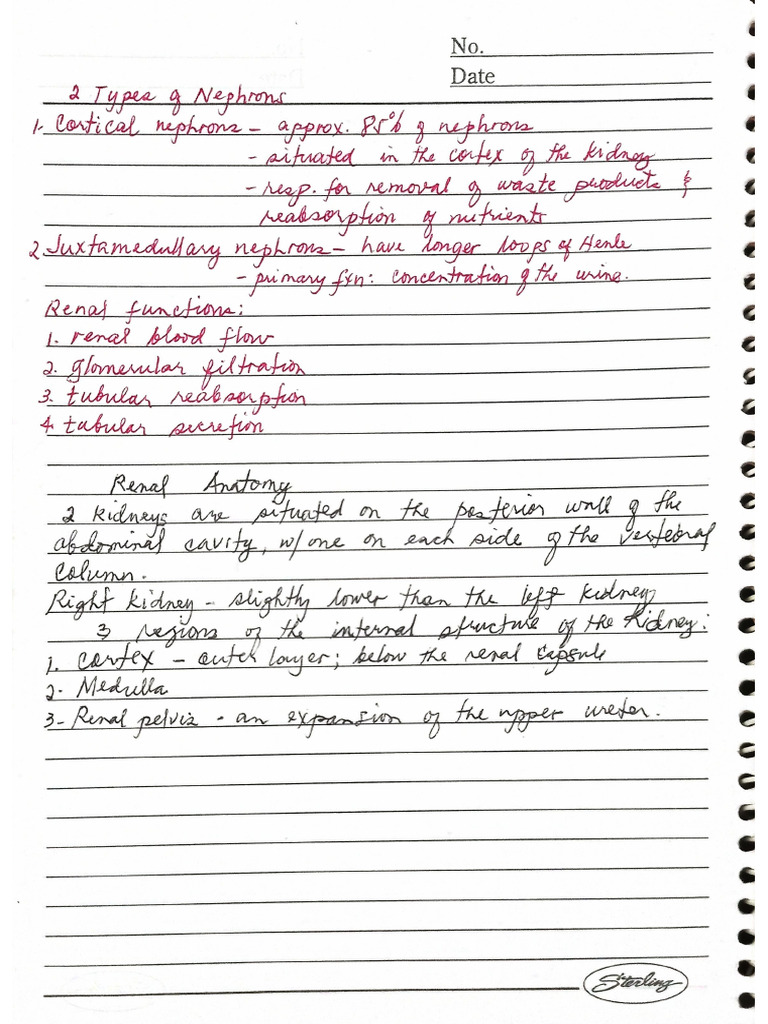 No.
Date
2 Types of Nephrons
1. Cortical nephrons - approx. 85% of nephrons
- situated in the cortex of the kidney
- resp. for removal of waste products &
reabsorption of nutrients
2. Juxtamedullary nephrons - have longer loops of Henle
- primary fxn: concentration of the urine.
Renal functions:
1. renal blood flow
2. glomerular filtration
3. tubular reabsorption
4. tubular secretion
Renal Anatomy
2 kidneys are situated on the posterior wall of the
abdominal cavity, w/one on each side of the vertebral
column.
Right kidney - slightly lower than the left kidney
3 regions of the internal structure of the kidney:
1. Cortex - outer layer; below the renal capsule
2. Medulla
3. Renal pelvis - an expansion of the upper ureter.
Sterling